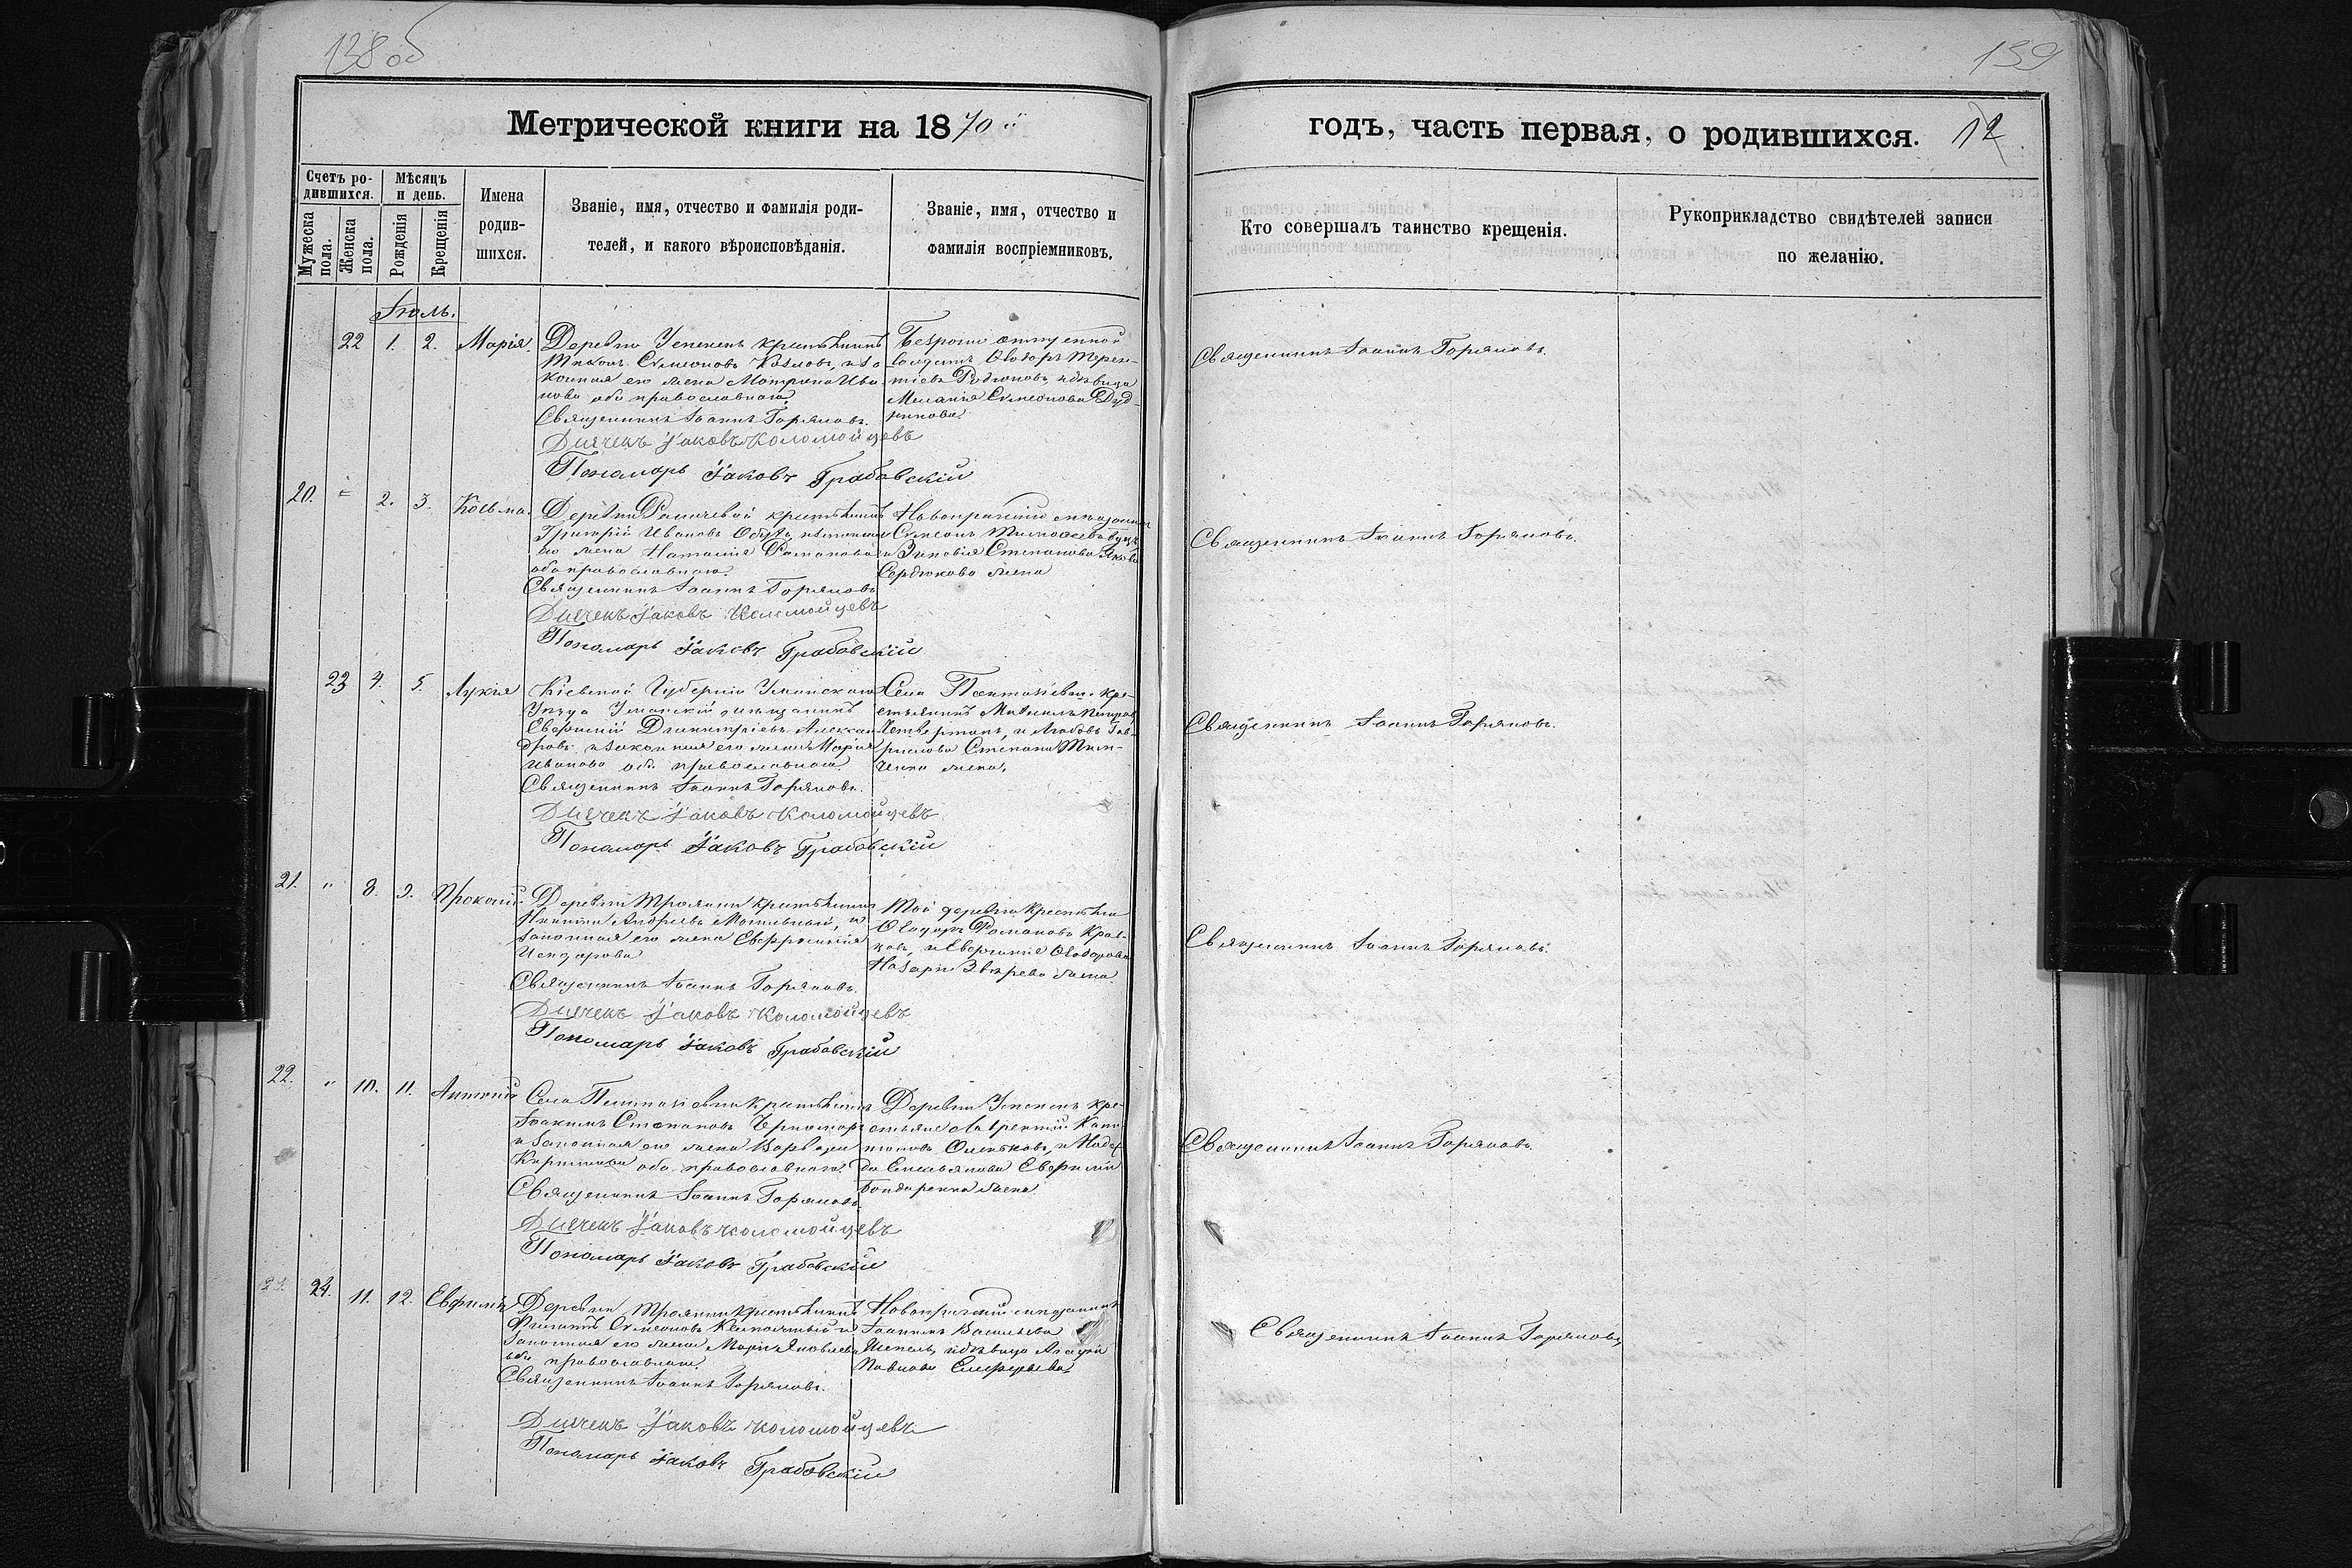 138 об
139
Метрической книги на 1870 й
годъ, часть первая, о родившихся. 12
Счетъ родившихся.
Мужеска пола.
Женска пола.
Мѣсяцъ и день.
Рожденія
Крещенія
Имена родившихся.
Званіе, имя, отчество и фамилія роди-
телей, и какого вѣроисповѣданія.
Званіе, имя, отчество и
фамилія воспріемниковъ.
Кто совершалъ таинство крещенія.
Рукоприкладство свидѣтелей записи
по желанію.
Іюль.
22 1. 2. Марія.
Деревни крестьянинъ
Симеоновъ Козловъ, и за
конная его жена Матрона Ива
нова оба православного
Священникъ Іоаннъ Горяновъ.
Дьячекъ Іаковъ Коломойцевъ
Пономарь Іаковъ Грабовскій
солдатъ Ѳеодоръ Терен-
тіевъ Родіоновъ, и дѣвица
Меланія Симеонова Дуд-
никова
Священникъ Іоаннъ Горяновъ.
20. " 2. 3. Косьма.
Деревни крестьянинъ
Григорій Ивановъ и законная
его жена Наталія Романова
оба православного.
Священникъ Іоаннъ Горяновъ
Дьячекъ Іаковъ Коломойцевъ
Пономарь Іаковъ Грабовскій
Новопражскій мѣщанинъ
Симеонъ Тимоѳеевъ
и Зиновія Степанова Якова
Сердюкова жена
Священникъ Іоаннъ Горяновъ.
23 4. 5. Лукія
Кіевской Губерніи Уманскаго
Уѣзда Уманскій мѣщанинъ
Димитріевъ Алексан-
дровъ и законная его жена Марія
Иванова оба православного.
Священникъ Іоаннъ Горяновъ.
Дьячекъ Іаковъ Коломойцевъ
Пономарь Іаковъ Грабовскій
Села Пантазіевки кре-
стьянинъ Михаилъ Петровъ
Четвертакъ, и Любовь Гав-
рилова Степана Тим-
ченка жена.
Священникъ Іоаннъ Горяновъ.
21. " 8. 9. Прокопій.
Деревни Троянки крестьянинъ
Никита Андреевъ Могильный, и
законная его жена Евфросинія
Священникъ Іоаннъ Горяновъ.
Дьячекъ Іаковъ Коломойцевъ
Пономарь Іаковъ Грабовскій
Той деревни крестьяне
Ѳеодоръ Романовъ Крав-
цовъ, и Ѳеодорова
Назарія Звѣрева жена
Священникъ Іоаннъ Горяновъ.
22. " 10. 11. Антоній
Села Пантазіевки крестьянинъ
Іоакимъ Степановъ Черноморъ
и законная его жена Варвара
Кириллова оба православного.
Священникъ Іоаннъ Горяновъ
Дьячекъ Іаковъ Коломойцевъ
Пономарь Іаковъ Грабовскій
Деревни кре-
стьяне Лаврентій Капи
тоновъ и Надеж
да Емельянова
Бондаренка жена
Священникъ Іоаннъ Горяновъ.
24. 11. 12. Евфимія
Деревни Троянки крестьянинъ
Филиппъ Симеоновъ и
законная его жена Марія Яковлева
оба православного
Священникъ Іоаннъ Горяновъ.
Дьячекъ Іаковъ Коломойцевъ
Пономарь Іаковъ Грабовскій
Новопражскій мѣщанинъ
Іоакимъ Васильевъ
Шепель, и дѣвица
Павлова
Священникъ Іоаннъ Горяновъ